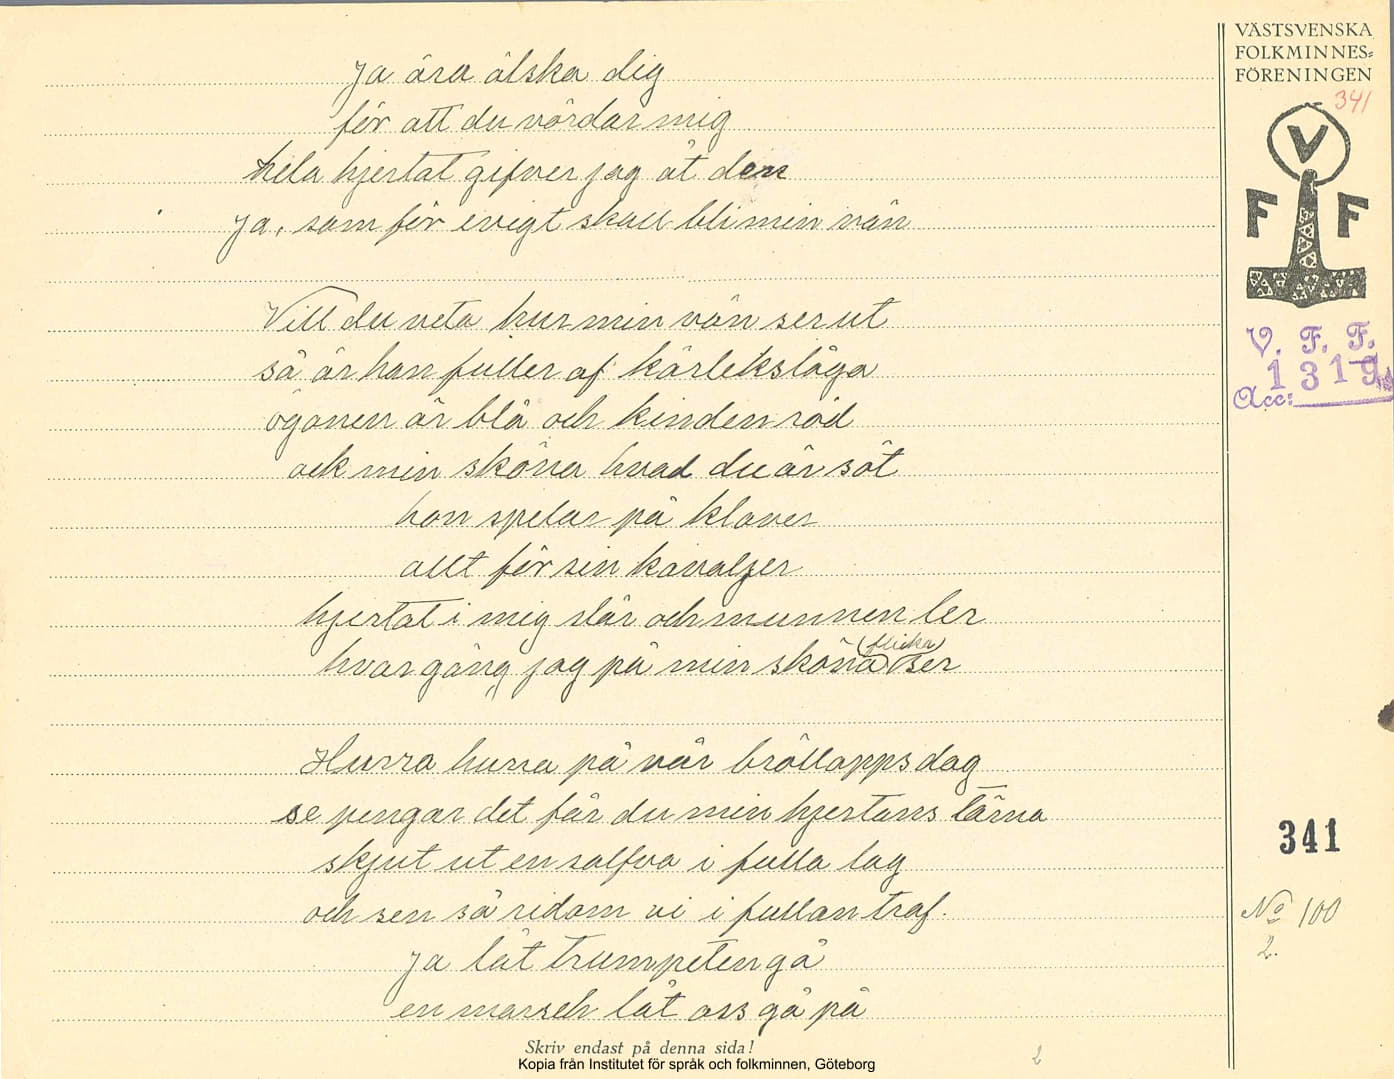 Ja ära älska dig
för att du vördar mig
hela hjertat gifver jag åt den
ja, som för evigt skall bli min vän
Vill du veta hur min vän ser ut
så är han fuller af kärlekslåga
ögonen är blå och kinden röd
ack min sköna hvad du är söt
hon spelar på klaver
allt för sin kavaljer
hjertat i mig slår och munnen ler
(flicka)
hvar gång jag på min sköna ser
Hurra hurra på vår bröllopps dag
se pengar det får du min hjertans tärna
skjut ut en salfva i fulla lag
och sen så ridom vi i fullan traf.
Ja låt trumpeten gå
en marsch låt oss gå på
Skriv endast på denna sida!
2
Kopia från Institutet för språk och folkminnen, Göteborg
VÄSTSVENSKA
FOLKMINNES=
FÖRENINGEN
341
V
F F
V. F. F.
1319
Acc:
341
No 100
2.